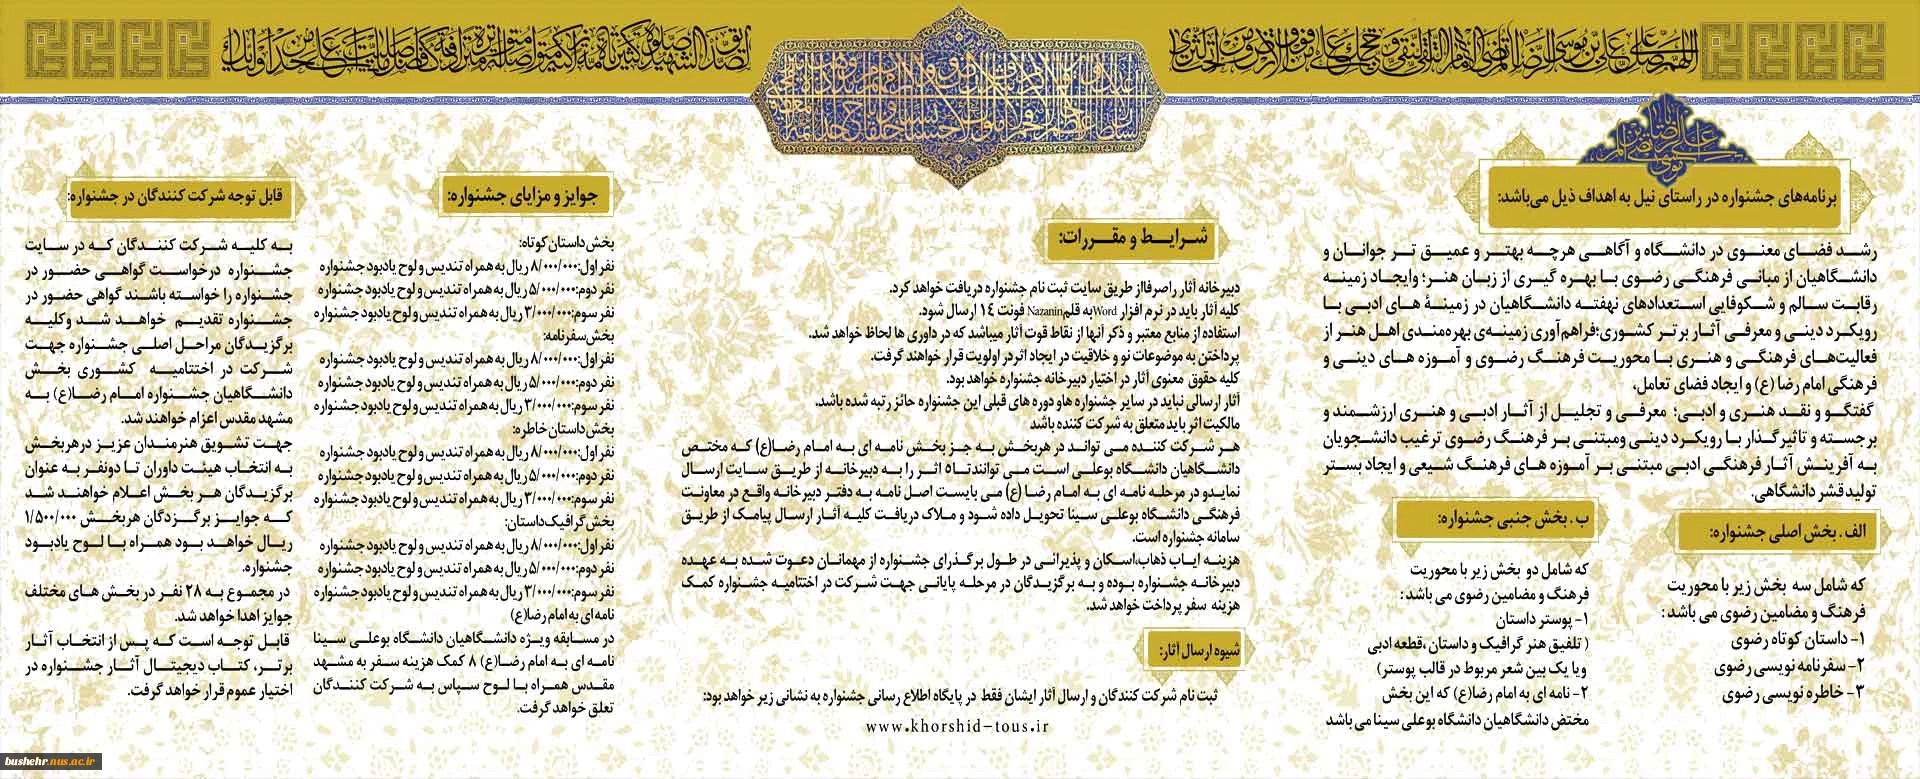 اللهم صل علی علی بن موسی الرضا المرتضی الامام التقی النقی و حجتک علی من فوق الارض و من تحت الثری
الصدیق الشهید صلوة کثیرة تامة زاکیة متواصلة متواترة مترادفة کافضل ما صلیت علی احد من اولیائک
برنامه‌های جشنواره در راستای نیل به اهداف ذیل می‌باشد:
رشد فضای معنوی در دانشگاه و آگاهی هرچه بهتر و عمیق تر جوانان و
دانشگاهیان از مبانی فرهنگی رضوی با بهره گیری از زبان هنر؛ وایجاد زمینه
رقابت سالم و شکوفایی استعدادهای نهفته دانشگاهیان در زمینهٔ های ادبی با
رویکرد دینی و معرفی آثار برتر کشوری؛فراهم‌آوری زمینه‌ی بهره‌مندی اهل هنر از
فعالیت‌های فرهنگی و هنری با محوریت فرهنگ رضوی و آموزه های دینی و
فرهنگی امام رضا (ع) و ایجاد فضای تعامل،
گفتگو و نقد هنری و ادبی؛ معرفی و تجلیل از آثار ادبی و هنری ارزشمند و
برجسته و تاثیرگذار با رویکرد دینی ومبتنی بر فرهنگ رضوی ترغیب دانشجویان
به آفرینش آثار فرهنگی ادبی مبتنی بر آموزه های فرهنگ شیعی و ایجاد بستر
تولیدقشر دانشگاهی.
الف . بخش اصلی جشنواره:
که شامل سه بخش زیر با محوریت
فرهنگ و مضامین رضوی می باشد :
۱- داستان کوتاه رضوی
۲- سفرنامه نویسی رضوی
۳- خاطره نویسی رضوی
ب . بخش جنبی جشنواره:
که شامل دو بخش زیر با محوریت
فرهنگ و مضامین رضوی می باشد :
۱- پوستر داستان
( تلفیق هنر گرافیک و داستان ،قطعه ادبی
ویا یک بین شعر مربوط در قالب پوستر)
۲- نامه ای به امام رضا(ع) که این بخش
مختض دانشگاهیان دانشگاه بوعلی سینا می باشد
شرایط و مقررات:
دبیرخانه آثار راصرفااز طریق سایت ثبت نام جشنواره دریافت خواهد کرد.
کلیه آثار باید در نرم افزار Wordبه قلمNazanin فونت ۱۴ ارسال شود.
استفاده از منابع معتبر و ذکر آنها از نقاط قوت آثار میباشد که در داوری ها لحاظ خواهد شد.
پرداختن به موضوعات نو و خلاقیت در ایجاد اثردر اولویت قرار خواهند گرفت.
کلیه حقوق معنوی آثار در اختیار دبیرخانه جشنواره خواهد بود.
آثار ارسالی نباید در سایر جشنواره هاو دوره های قبلی این جشنواره حائز رتبه شده باشد.
مالکیت اثر باید متعلق به شرکت کننده باشد
هر شرکت کننده می تواند در هربخش به جز بخش نامه ای به امام رضا(ع) که مختص
دانشگاهیان دانشگاه بوعلی است می توانندتا۵ اثر را به دبیرخانه از طریق سایت ارسال
نمایدو در مرحله نامه ای به امام رضا (ع) می بایست اصل نامه به دفتر دبیرخانه واقع در معاونت
فرهنگی دانشگاه بوعلی سینا تحویل داده شود و ملاک دریافت کلیه آثار ارسال پیامک از طریق
سامانه جشنواره است.
هزینه ایاب ذهاب،اسکان و پذیرائی در طول برگذرای جشنواره از مهمانان دعوت شده به عهده
دبیرخانه جشنواره بوده و به برگزیدگان در مرحله پایانی جهت شرکت در اختتامیه جشنواره کمک
هزینه سفر پرداخت خواهد شد.
شیوه ارسال آثار:
ثبت نام شرکت کنندگان و ارسال آثار ایشان فقط در پایگاه اطلاع رسانی جشنواره به نشانی زیر خواهد بود:
www.khorshid-tous.ir
جوایز و مزایای جشنواره:
بخش داستان کوتاه:
نفر اول: ۸/۰۰۰/۰۰۰ ریال به همراه تندیس و لوح یادبود جشنواره
نفر دوم: ۵/۰۰۰/۰۰۰ ریال به همراه تندیس و لوح یادبود جشنواره
نفر سوم: ۳/۰۰۰/۰۰۰ ریال به همراه تندیس و لوح یادبود جشنواره
بخش سفرنامه:
نفر اول: ۸/۰۰۰/۰۰۰ ریال به همراه تندیس و لوح یادبود جشنواره
نفر دوم: ۵/۰۰۰/۰۰۰ ریال به همراه تندیس و لوح یادبود جشنواره
نفر سوم: ۳/۰۰۰/۰۰۰ ریال به همراه تندیس و لوح یادبود جشنواره
بخش داستان خاطره:
نفر اول: ۸/۰۰۰/۰۰۰ ریال به همراه تندیس و لوح یادبود جشنواره
نفر دوم: ۵/۰۰۰/۰۰۰ ریال به همراه تندیس و لوح یادبود جشنواره
نفر سوم: ۳/۰۰۰/۰۰۰ ریال به همراه تندیس و لوح یادبود جشنواره
بخش گرافیک داستان:
نفر اول: ۸/۰۰۰/۰۰۰ ریال به همراه تندیس و لوح یادبود جشنواره
نفر دوم: ۵/۰۰۰/۰۰۰ ریال به همراه تندیس و لوح یادبود جشنواره
نفر سوم: ۳/۰۰۰/۰۰۰ ریال به همراه تندیس و لوح یادبود جشنواره
نامه ای به امام رضا(ع)
در مسابقه ویژه دانشگاهیان دانشگاه بوعلی سینا
نامه ای به امام رضا(ع) ۸ کمک هزینه سفر به مشهد
مقدس همراه با لوح سپاس به شرکت کنندگان
تعلق خواهد گرفت.
قابل توجه شرکت کنندگان در جشنواره:
به کلیه شرکت کنندگان که در سایت
جشنواره درخواست گواهی حضور در
جشنواره را خواسته باشند گواهی حضور در
جشنواره تقدیم خواهد شد وکلیه
برگزیدگان مراحل اصلی جشنواره جهت
شرکت در اختتامیه کشوری بخش
دانشگاهیان جشنواره امام رضا(ع) به
مشهد مقدس اعزام خواهند شد.
جهت تشویق هنرمندان عزیز درهربخش
به انتخاب هیئت داوران تا دونفر به عنوان
برگزیدگان هر بخش اعلام خواهند شد
که جوایز برگزدگان هربخش ۱/۵۰۰/۰۰۰
ریال خواهد بود همراه با لوح یادبود
جشنواره.
در مجموع به ۲۸ نفر در بخش های مختلف
جوایز اهدا خواهد شد.
قابل توجه است که پس از انتخاب آثار
برتر، کتاب دیجیتال آثار جشنواره در
اختیار عموم قرار خواهد گرفت.
bushehr.nus.ac.ir